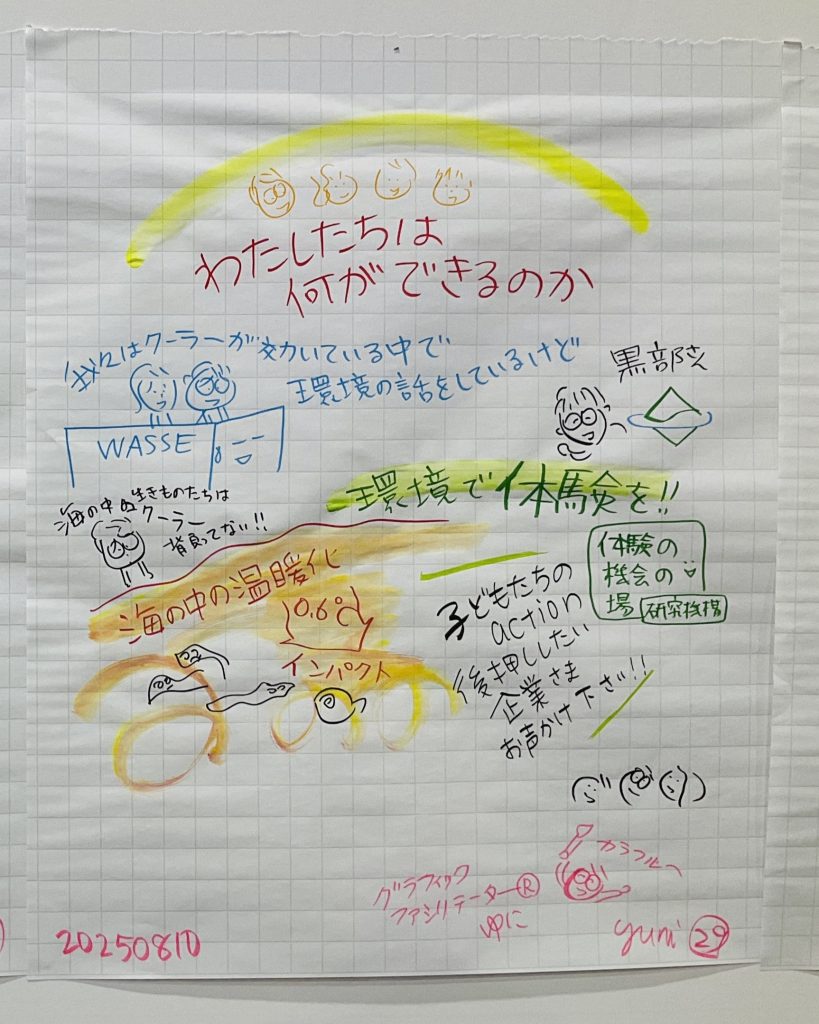 わたしたちは
何ができるのか
我々はクーラーが効いている中で
環境の話をしているけど
WASSE
黒部さん
海の中の生きものたちは
クーラー
背負ってない!!
環境で体験を!!
海の中の温暖化
0.6℃
インパクト
体験の
機会の
場
研究機構
子どもたちの
action
後押ししたい
企業さま
お声かけ下さい!!
カラフルへ
グラフィック
ファシリテーター®
ゆに
20250810
yuni 29